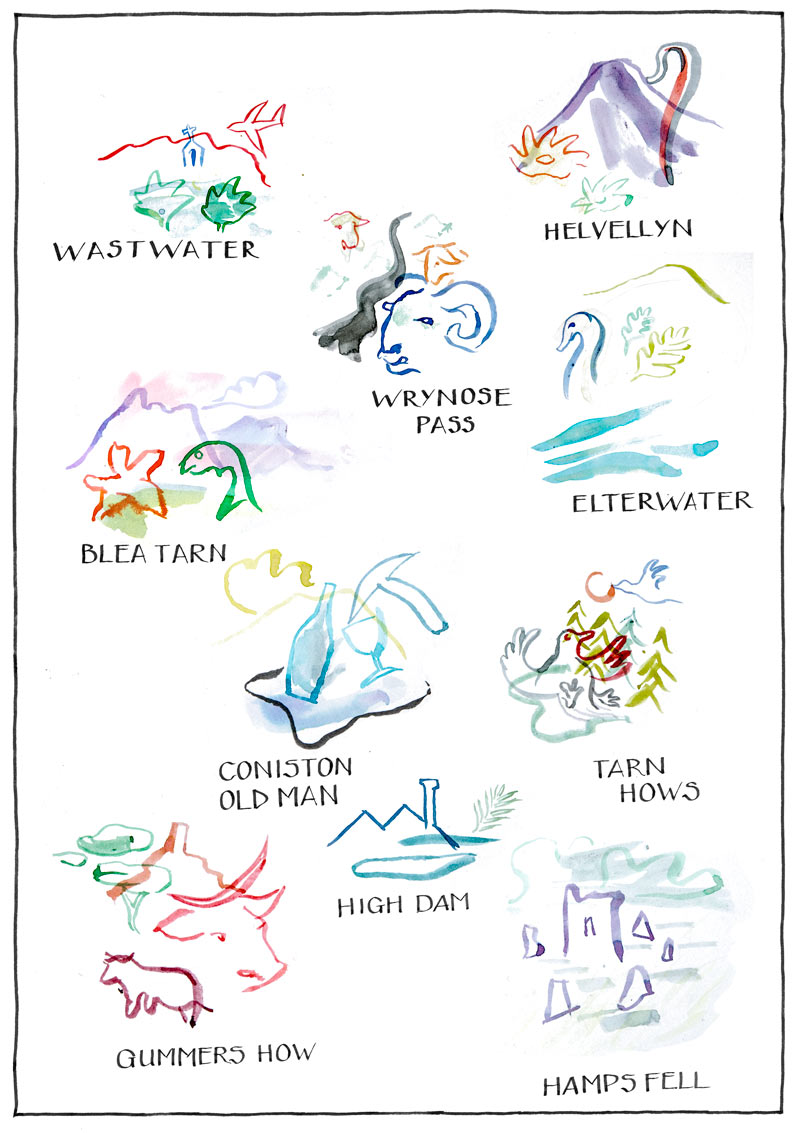 WASTWATER
HELVELLYN
WRYNOSE
PASS
ELTERWATER
BLEA TARN
CONISTON
OLD MAN
TARN
HOWS
HIGH DAM
GUMMERS HOW
HAMPSFELL